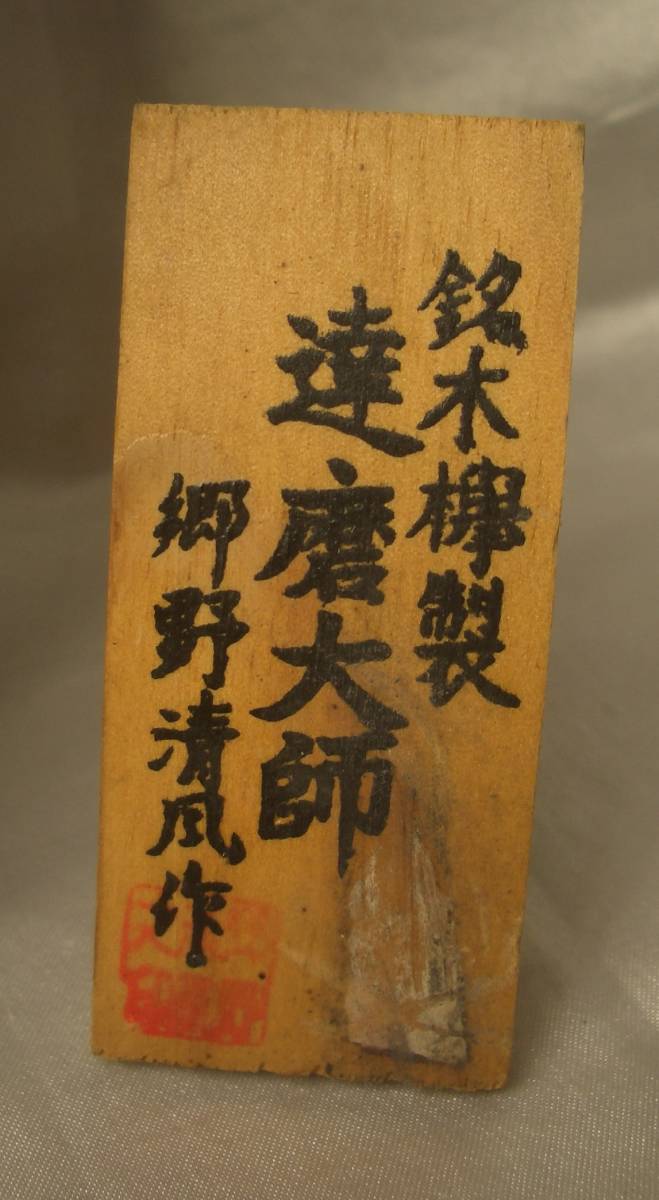 銘木欅製
達磨大師
郷野清風作